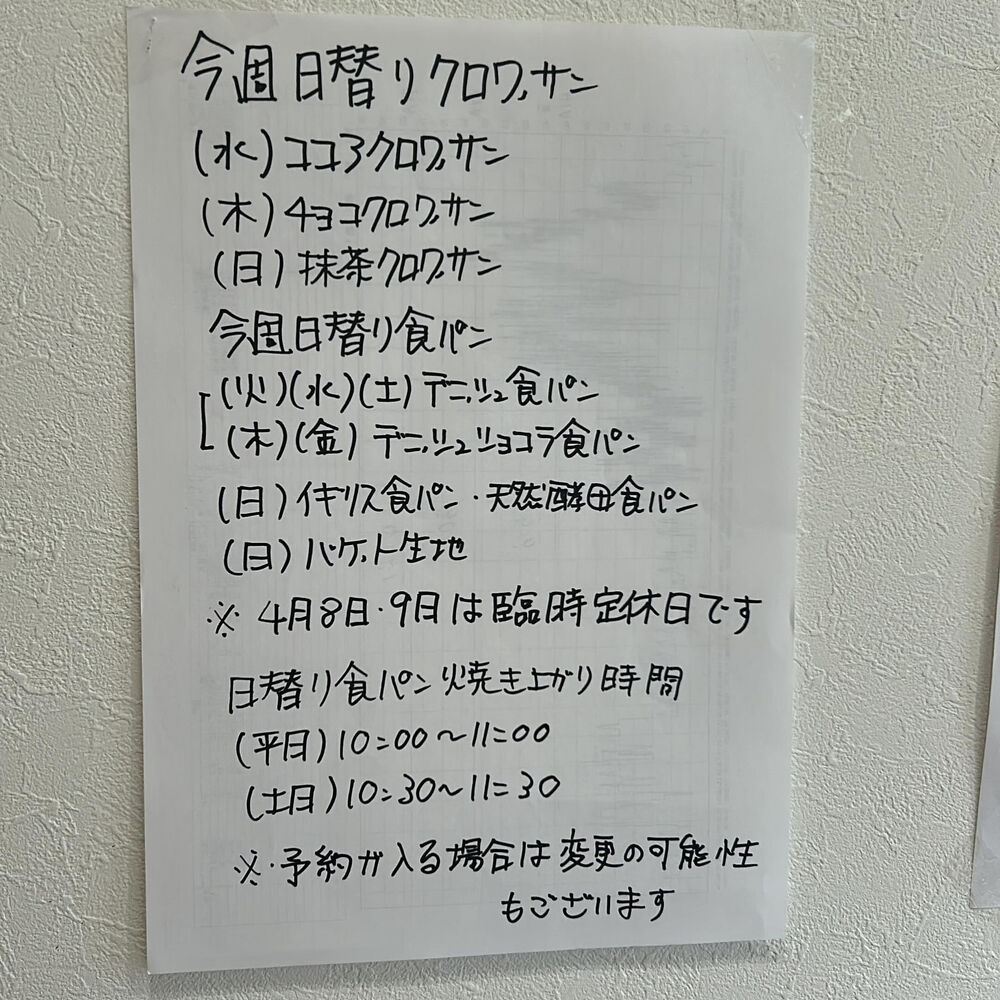 今週日替りクロワッサン
(水)ココアクロワッサン
(木)チョコクロワッサン
(日)抹茶クロワッサン
今週日替り食パン
(火)(水)(土)デニッシュ食パン
(木)(金)デニッシュショコラ食パン
(日)イギリス食パン・天然酵母食パン
(日)バゲット生地
※ 4月8日・9日は臨時定休日です
日替り食パン焼き上がり時間
(平日)10:00〜11:00
(土日)10:30〜11:30
※・予約が入る場合は変更の可能性
もございます